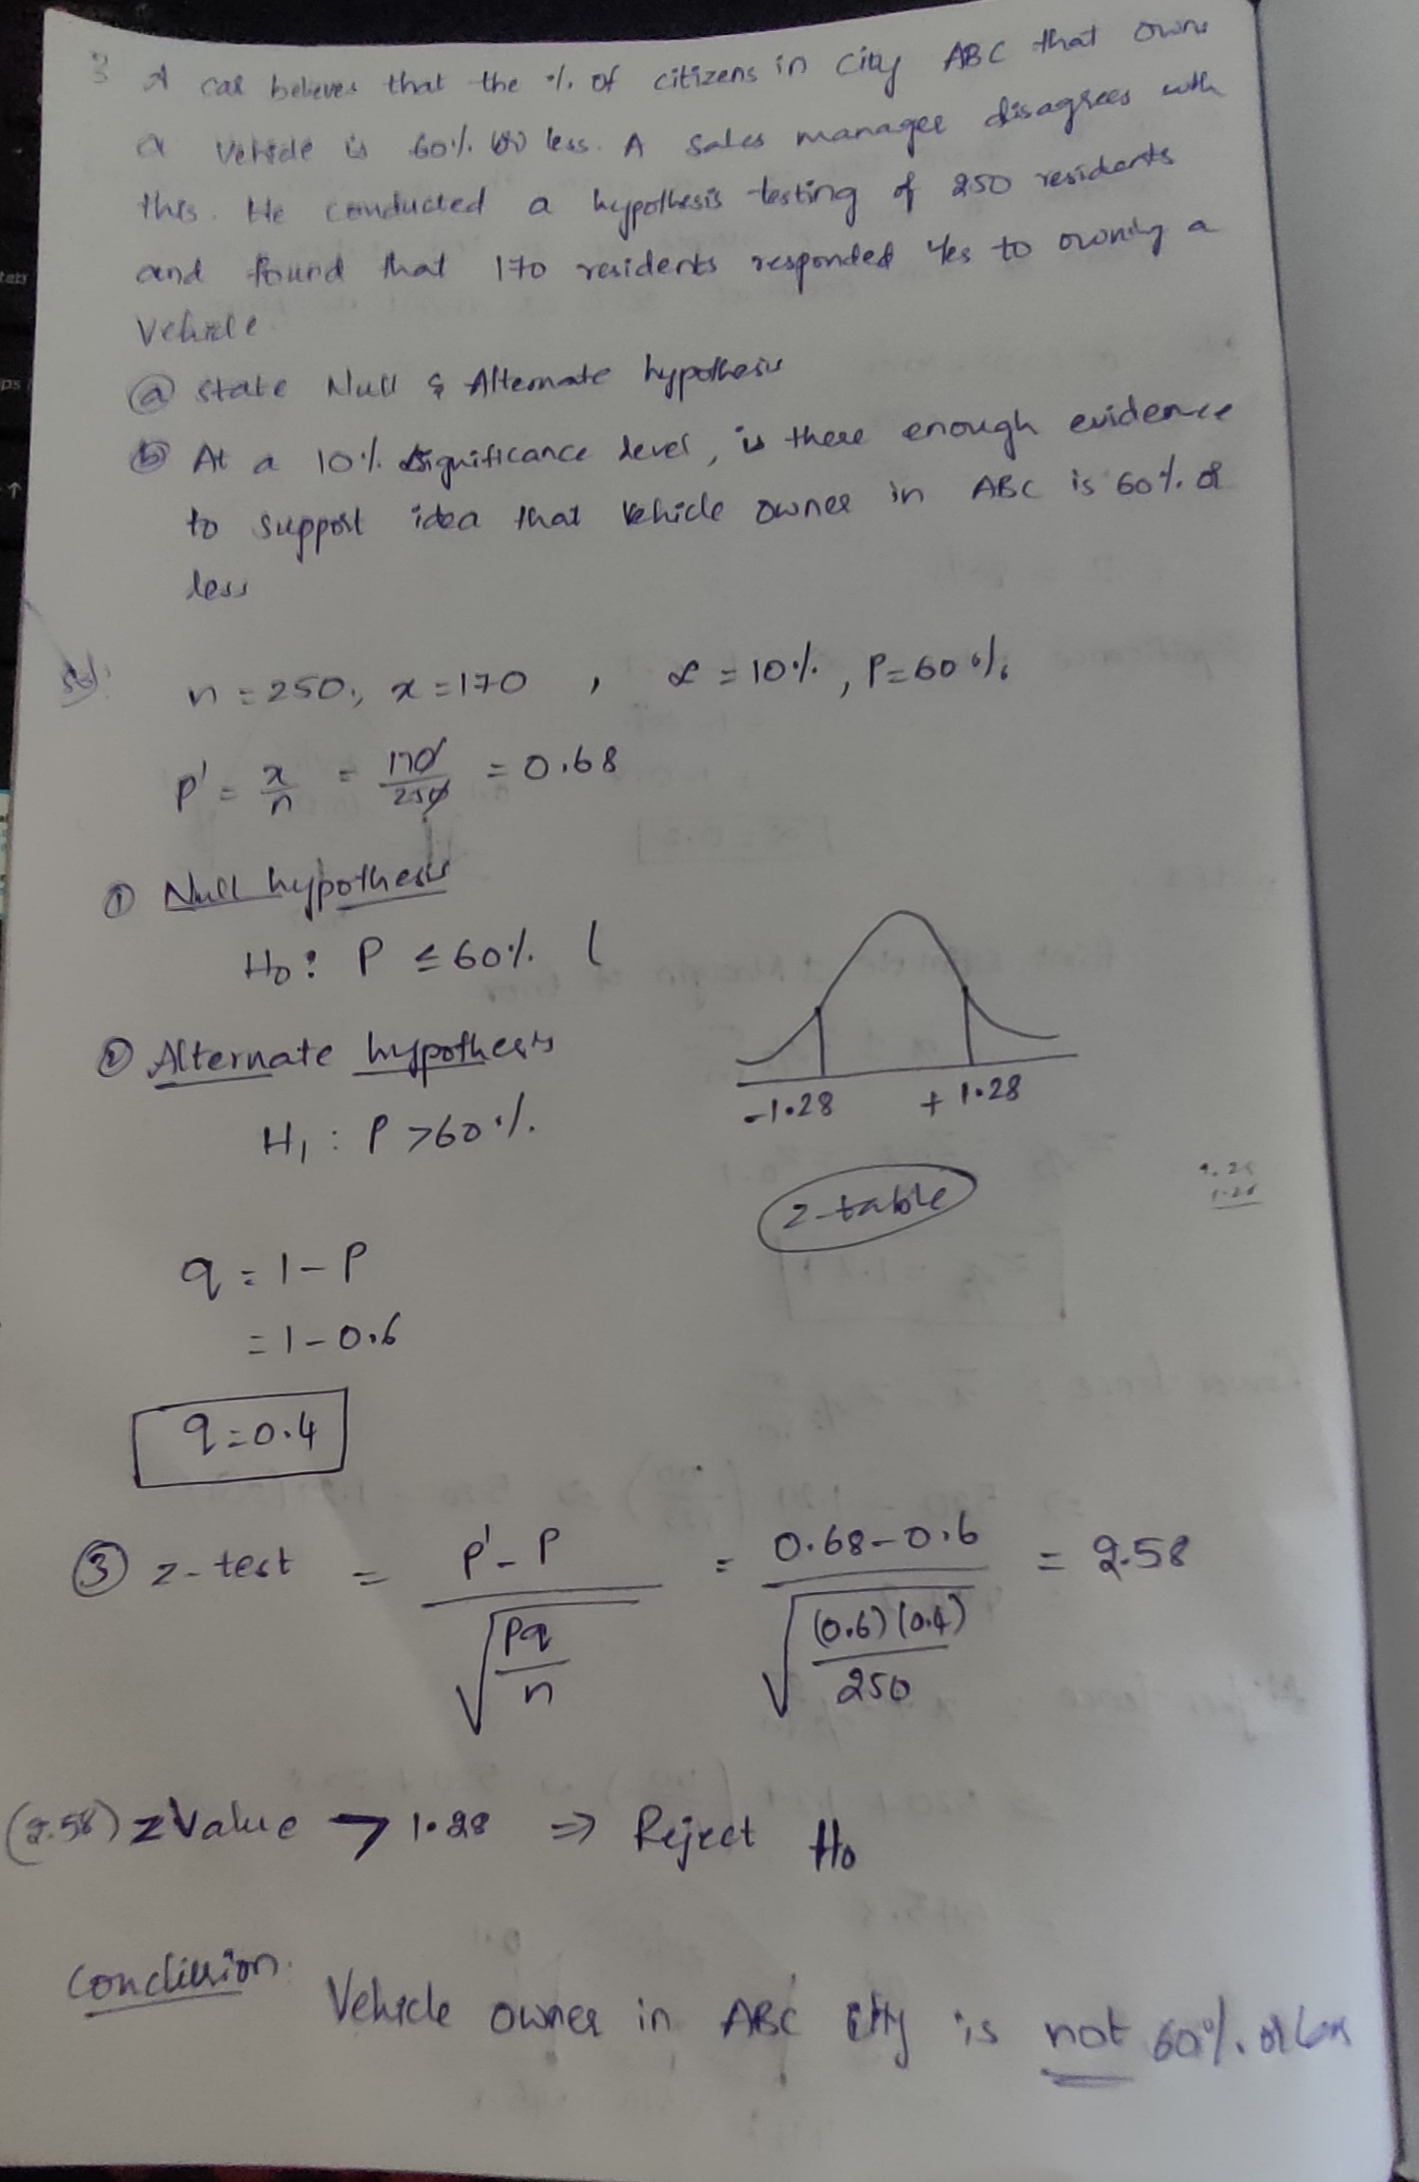 3 A car believes that the %. of citizens in city ABC that owns
a vehicle is 60%. or less. A sales manager disagrees with
this. He conducted a hypothesis testing of 250 residents
and found that 170 residents responded Yes to owning a
vehicle
(a) state Null & Alternate hypothesis
(b) At a 10%. significance level, is there enough evidence
to support idea that vehicle owner in ABC is 60%. or
less
Sol:
n = 250, x = 170 , α = 10%. , P = 60%
p' = x/n = 170/250 = 0.68
① Null hypothesis
H0: P ≤ 60%. (
② Alternate hypothesis
H1: P > 60%.
-1.28 + 1.28
z-table
q = 1 - P
= 1 - 0.6
q = 0.4
③ z-test = p' - P / √(Pq/n) = 0.68 - 0.6 / √((0.6)(0.4)/250) = 2.58
(2.58) z value > 1.28 ⇒ Reject H0
Conclusion: Vehicle owner in ABC city is not 60%. or less